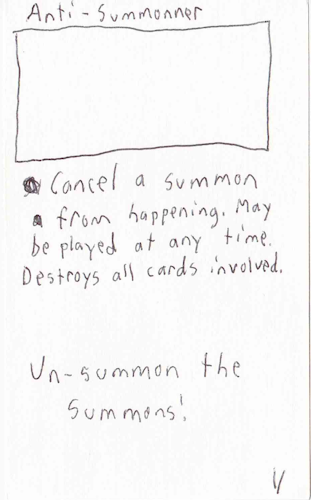 Anti-Summonner
Cancel a summon
from happening. May
be played at any time.
Destroys all cards involved.
Un-summon the
summons!